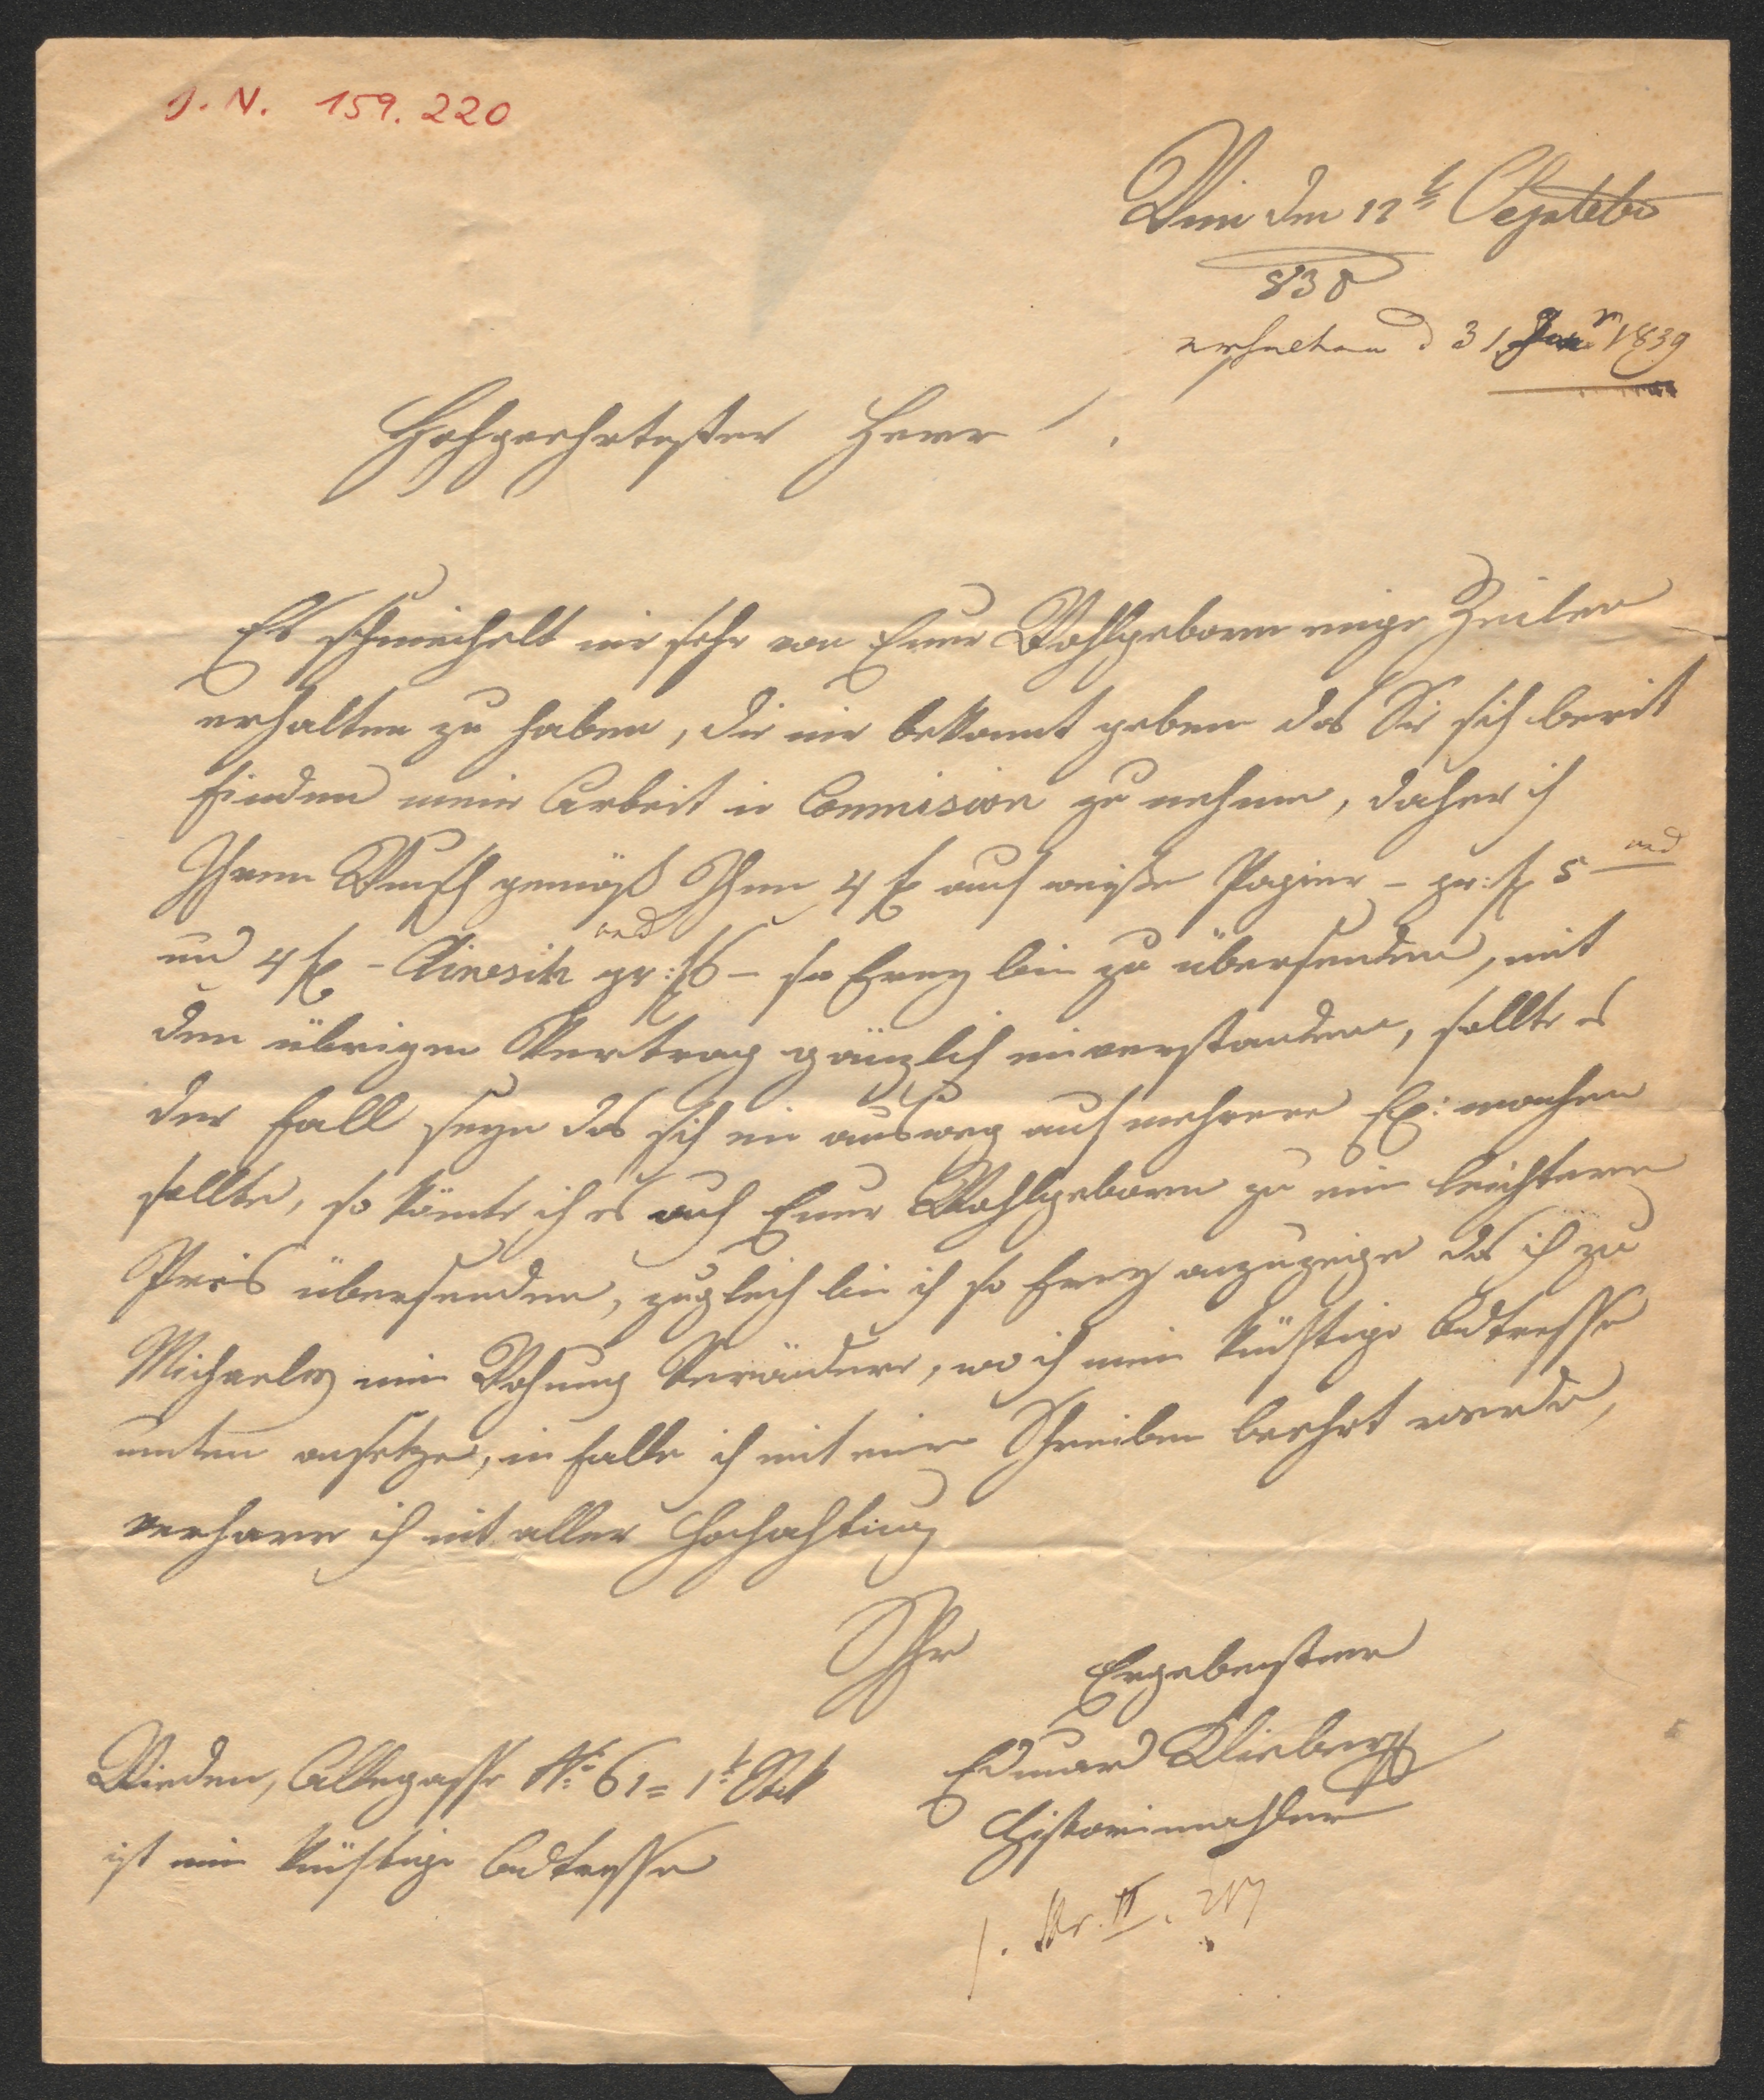 J. N. 159. 220
Wien den 12t Septebr
838
erhalten d 31 Jan 1839
Hochgeehrtester Herr
Es schmeichelt mir sehr von Euer Wohlgeboren einige Zeilen
erhalten zu haben, die mir bekannt geben das Sie sich bereit
finden meine Arbeit in Commision zu nehmen, daher ich
Ihrem Wunsch gemäß Ihnen 4 Ex auf weißes Papier – pr: f 5
und 4 Ex – Chinesih pr: f 6 – so frey bin zu übersenden, mit
den übrigen Vertrag gänzlich einverstanden, sollte es
der Fall seyn das sich ein ausweg auf mehrere Ex: machen
sollte, so könnte ich es auch Euer Wohlgeboren zu ein leichteren
Preis übersenden, zugleich bin ich so frey anzuzeigen das ich zu
Michaely meine Wohnung Verändere, wo ich meine künftige Adtresse
unten ansetze, im falle ich mit einen Schreiben beehrt werde,
verharre ich mit aller Hochachtung
Ihr
Ergebenster
Eduard Klieber
Historienmahler
Wieden, Alleegasse No 61 = 1t Stok
ist meine künftige Adtresse